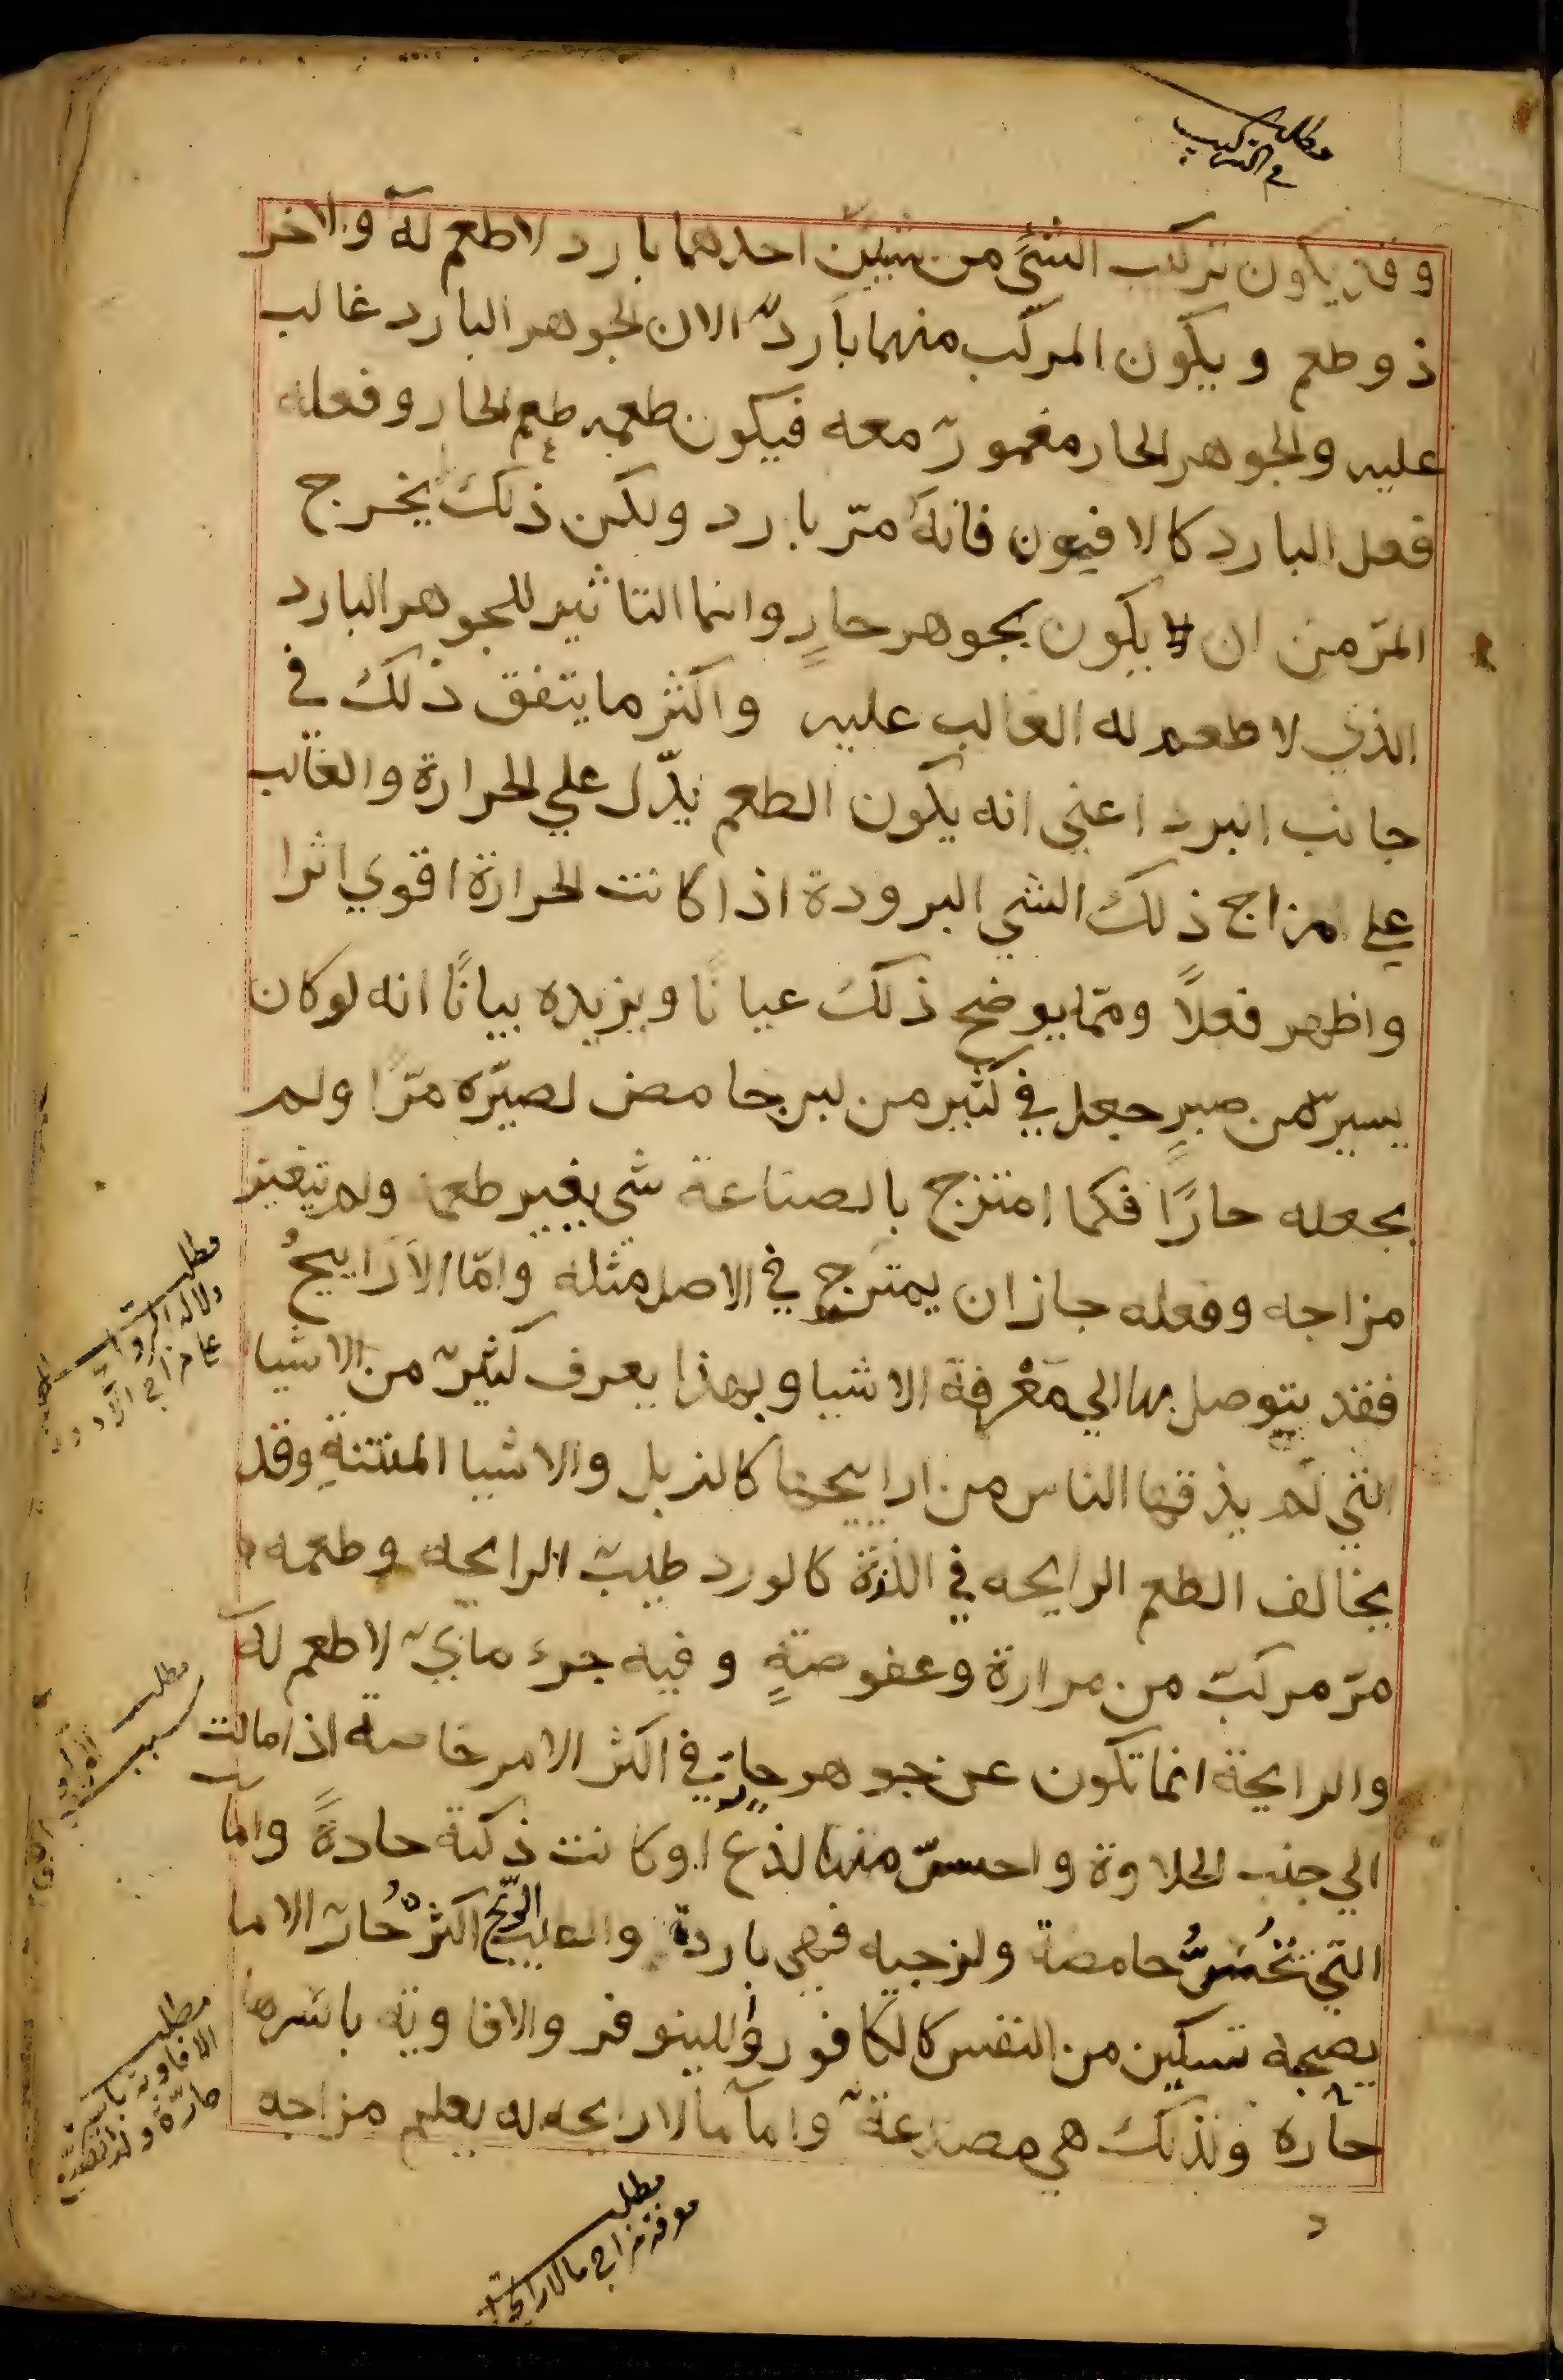 مطلب
في التركيب
وقد يكون تركيب الشئ من شيين احدهما بارد لا طعم له والاخر
ذو طعم ويكون المركب منهما باردّ الا ان الجوهر البارد غالب
عليه والجوهر الحار مغمورّ معه فيكون طعمه طعم الحار وفعله
فعل البارد كالافيون فانه مرّ بارد ولكن ذلك يخرج
المرّ من ان يكون بجوهر حارٍ وانما التاثير للجوهر البارد
الذي لا طعم له الغالب عليه واكثر ما يتفق ذلك في
جانب البرد اعني انه يكون الطعم يدّل علي الحرارة والغالب
علي مزاج ذلك الشي البرودة اذا كانت الحرارة اقوي اثرا
واظهر فعلاً وممّا يوضح ذلك عيانًا ويزيده بيانًا انه لو كان
يسيرّ من صبرٍ جعل في كثير من لبن حامض لصيّره مرّا ولم
يجعله حارًا فكما امتزج بالصناعة شي يغير طعمه ولم يتغير
مزاجه وفعله جاز ان يمتزج في الاصل مثله وامّا الاَرَاييحُ
فقد يتوصل بها الي مَعْرفة الاشيا وبهذا يعرف كثيرّ من الاشيا
التي لم يذقها الناس من اراييحها كالزبل والاشيا المنتنةِ وقد
يخالف الطعم الرايحه في اللذة كالورد طيبّ الرايحه وطعمه
مرّ مركبّ من مرارة وعفوصةٍ وفيه جزء مايّ لا طعم له
والرايحة انما تكون عن جوهر حارٍّ في اكثر الامر خاصه اذا مالت
الي جنب الحلاوة واحسّ منها لذع او كانت ذكية حادةً واما
التي تُحُسُّ حامضة ولزجيه فهي باردة والطيب الريّح اكثرهُ حُارّ الا ما
يصحبه تسكين من النفس كالكافور والنينوفر والافاويه باسرها
حاره ولذلك هي مصدعةّ وامآ ما لا رايحه له يعلم مزاجه
مطلب
دلالة الروايح
علي مزاج الادوية
مطلب
سبب
مطلب
الافاويه باسرها
حارّة ولذا تصدع
مطلب
معرفة مزاج ما لا رايحة له